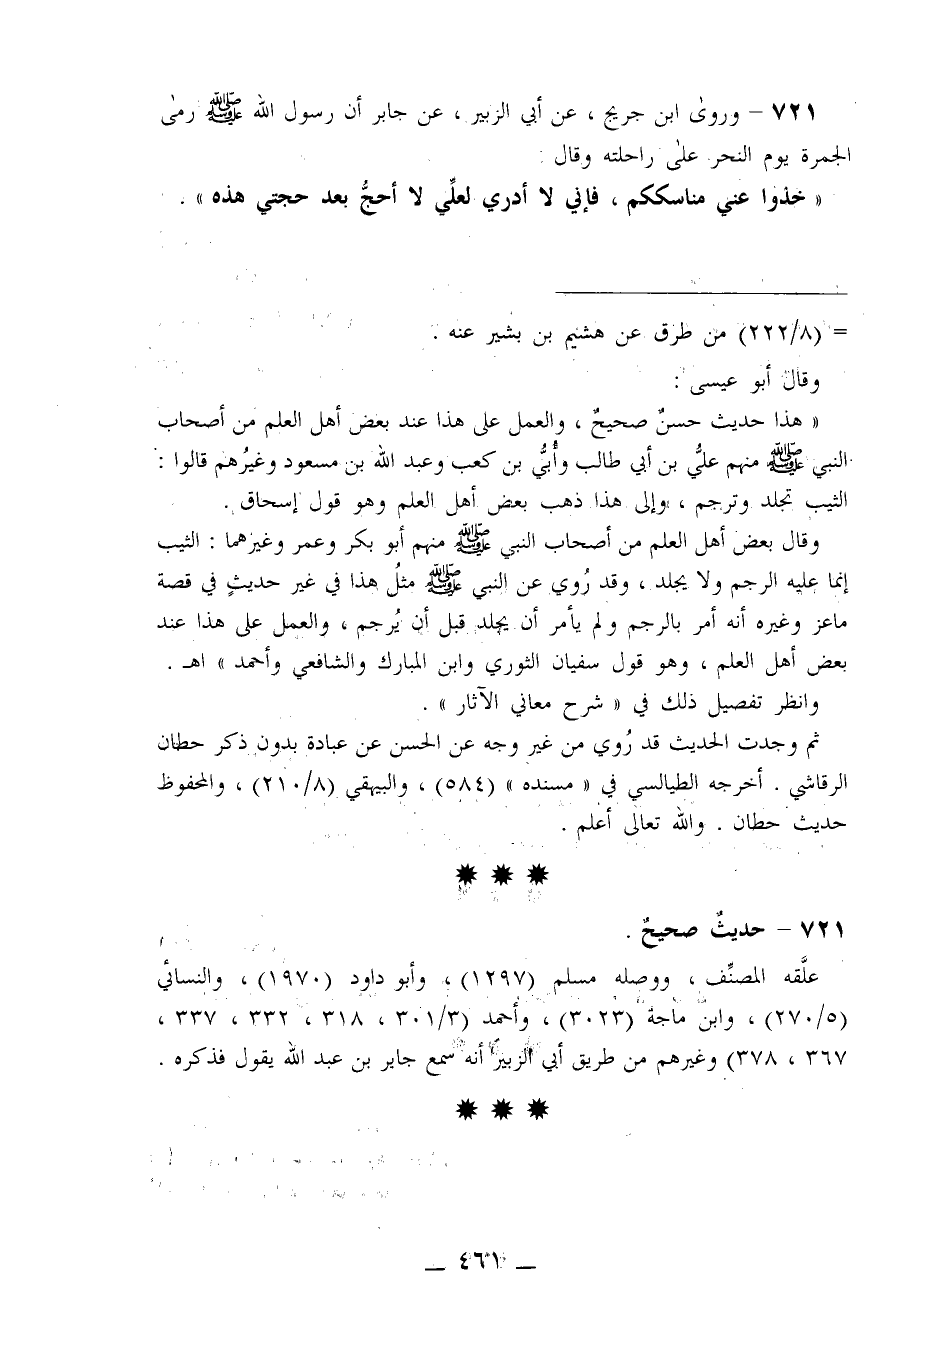 ٧٢١ – وروىٰ ابن جريج ، عن أبي الزبير ، عن جابر أن رسول الله ﷺ رمىٰ
الجمرة يوم النحر علىٰ راحلته وقال :
« خذوا عني مناسككم ، فإني لا أدري لعلِّي لا أحجُّ بعد حجتي هذه » .
= (٢٢٢/٨) من طرق عن هشيم بن بشير عنه .
وقال أبو عيسى :
« هذا حديث حسنٌ صحيحٌ ، والعمل على هذا عند بعض أهل العلم من أصحاب
النبي ﷺ منهم عليُّ بن أبي طالب وأُبيُّ بن كعب وعبد الله بن مسعود وغيرُهم قالوا :
الثيب تجلد وترجم ، وإلى هذا ذهب بعض أهل العلم وهو قول إسحاق .
وقال بعض أهل العلم من أصحاب النبي ﷺ منهم أبو بكر وعمر وغيرهما : الثيب
إنما عليه الرجم ولا يجلد ، وقد رُوي عن النبي ﷺ مثلُ هذا في غير حديثٍ في قصة
ماعز وغيره أنه أمر بالرجم ولم يأمر أن يجلد قبل أن يُرجم ، والعمل على هذا عند
بعض أهل العلم ، وهو قول سفيان الثوري وابن المبارك والشافعي وأحمد » اهـ .
وانظر تفصيل ذلك في « شرح معاني الآثار » .
ثم وجدت الحديث قد رُوي من غير وجه عن الحسن عن عبادة بدون ذكر حطان
الرقاشي . أخرجه الطيالسي في « مسنده » (٥٨٤) ، والبيهقي (٢١٠/٨) ، والمحفوظ
حديث حطان . والله تعالى أعلم .
٧٢١ – حديثٌ صحيحٌ .
علَّقه المصنِّف ، ووصله مسلم (١٢٩٧) ، وأبو داود (١٩٧٠) ، والنسائي
(٢٧٠/٥) ، وابن ماجة (٣٠٢٣) ، وأحمد (٣٠١/٣ ، ٣١٨ ، ٣٣٢ ، ٣٣٧ ،
٣٦٧ ، ٣٧٨) وغيرهم من طريق أبي الزبير أنه سمع جابر بن عبد الله يقول فذكره .
– ٤٦١ –